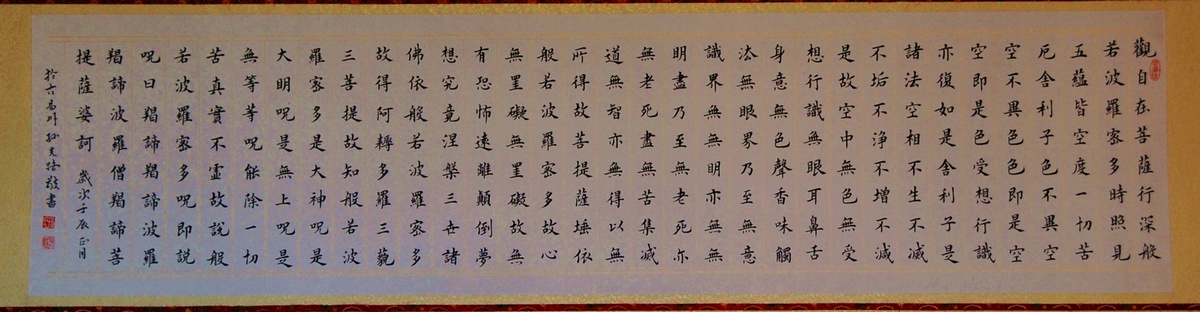 觀自在菩薩行深般
若波羅蜜多時照見
五蘊皆空度一切苦
厄舍利子色不異空
空不異色色即是空
空即是色受想行識
亦復如是舍利子是
諸法空相不生不滅
不垢不淨不增不減
是故空中無色無受
想行識無眼耳鼻舌
身意無色聲香味觸
法無眼界乃至無意
識界無無明亦無無
明盡乃至無老死亦
無老死盡無苦集滅
道無智亦無得以無
所得故菩提薩埵依
般若波羅蜜多故心
無罣礙無罣礙故無
有恐怖遠離顛倒夢
想究竟涅槃三世諸
佛依般若波羅蜜多
故得阿耨多羅三藐
三菩提故知般若波
羅蜜多是大神呪是
大明呪是無上呪是
無等等呪能除一切
苦真實不虛故說般
若波羅蜜多呪即說
呪曰羯諦羯諦波羅
羯諦波羅僧羯諦菩
提薩婆訶
歲次壬辰正月
於六 敬書